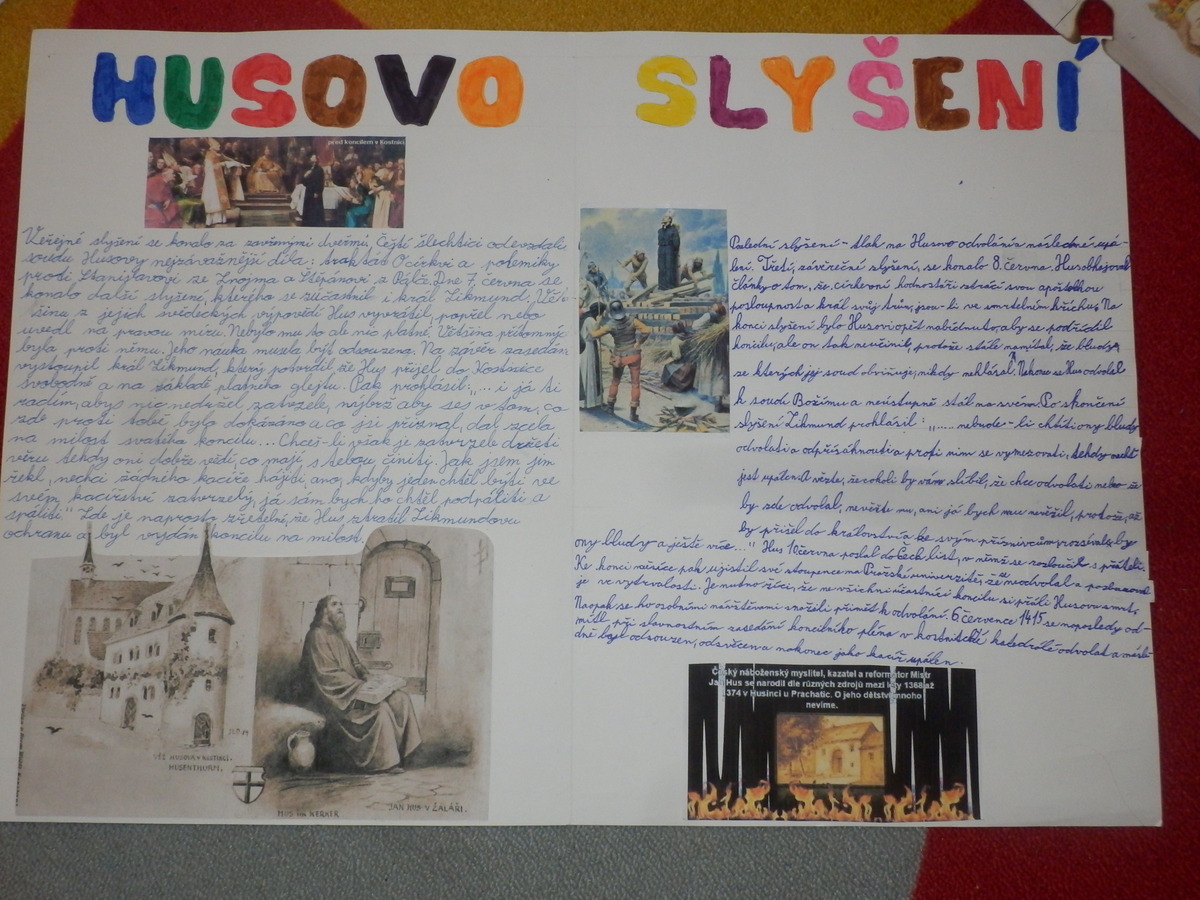 HUSOVO SLYŠENÍ
před koncilem v Kostnici
Veřejné slyšení se konalo za zavřenými dveřmi. Čeští šlechtici odevzdali
soudu Husovy nejzávažnější díla: traktát O církvi a polemiky
proti Stanislavovi ze Znojma a Štěpánovi z Pálče. Dne 7. června se
konalo další slyšení, kterého se zúčastnil i král Zikmund. Vět-
šinu z jejich svědeckých výpovědí Hus vyvrátil, popřel nebo
uvedl na pravou míru. Nebylo mu to ale nic platné. Většina přítomných
byla proti němu. Jeho nauka musela být odsouzena. Na závěr zasedání
vystoupil král Zikmund, který potvrdil že Hus přijel do Kostnice
svobodně a na základě platného glejtu. Pak prohlásil: „... i já ti
radím, abys nic nedržel zatvrzele, nýbrž aby ses v tom, co
zde proti tobě bylo dokázáno a co jsi přiznal, dal zcela
na milost svatého koncilu... Chceš-li však je zatvrzele držeti
věru tehdy oni dobře vědí, co mají s tebou činiti. Jak jsem jim
řekl, nechci žádného kacíře hájiti, ano, kdyby jeden chtěl býti ve
svém kacířství zatvrzelý, já sám bych ho chtěl podpáliti a
spáliti." Zde je naprosto zřetelné, že Hus ztratil Zikmundovu
ochranu a byl vydán koncilu na milost.
VĚŽ HUSOVA V KOSTNICI.
HUSENTHURM.
HUS IM KERKER
JAN HUS V ŽALÁŘI.
Poslední slyšení - tlak na Husovo odvolání a následné upá-
lení. Třetí, závěrečné slyšení, se konalo 8. června. Hus obhajoval
články o tom, že církevní hodnostáři ztrácí svou apoštolskou
posloupnost a král svůj trůn, jsou-li ve smrtelném hříchu. Na
konci slyšení bylo Husovi opět nabídnuto, aby se podřídil
koncilu, ale on tak neučinil, protože stále namítal, že bludy
ze kterých jej soud obviňuje, nikdy nehlásal. Nakonec se Hus odvolal
k soudu Božímu a neústupně stál na svém. Po skončení
slyšení Zikmund prohlásil: „..... nebude-li chtíti ony bludy
odvolati a odpřisáhnouti a proti nim se vymezovati, tehdy ať
jest upálen. A vězte, že cokoli by vám slíbil, že chce odvolati nebo že
by zde odvolal, nevěřte mu, ani já bych mu nevěřil, protože, až
by přišel do království ke svým příznivcům, rozséval by
ony bludy a ještě více..." Hus 10 června poslal do Čech list, v němž se rozloučil s přáteli.
Ke konci měsíce pak ujistil své stoupence na Pražské univerzitě, že se neodvolal a posiloval
je ve vytrvalosti. Je nutno říci, že ne všichni účastníci koncilu si přáli Husovu smrt,
Naopak se ho osobními návštěvami snažili přimět k odvolání. 6. července 1415 se naposledy od-
mítl při slavnostním zasedání koncilního pléna v kostnické katedrále odvolat a násle-
dně byl odsouzen, odsvěcen a nakonec jako kacíř upálen.
Český náboženský myslitel, kazatel a reformátor Mistr
Jan Hus se narodil dle různých zdrojů mezi lety 1368 až
1374 v Husinci u Prachatic. O jeho dětství mnoho
nevíme.